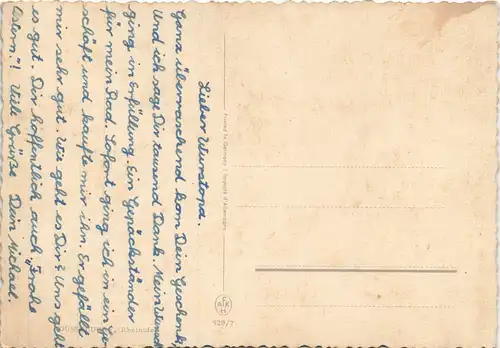 Lieber Wurstopa.
Ganz überraschend kam Dein Geschenk
Und ich sage Dir tausend Dank. Mein Wunsch
ging in Erfüllung. Ein Gepäckständer
für mein Rad. Sofort ging ich in ein Ge-
schäft und kaufte mir ihn. Er gefällt
mir sehr gut. Wie geht es Dir? Uns geht
es gut. Dir hoffentlich auch. "Frohe
Ostern"! Viele Grüße Dein Michael.
Printed in Germany / Importé d'Allemagne
AFKH
928/7
(Rheinufer)